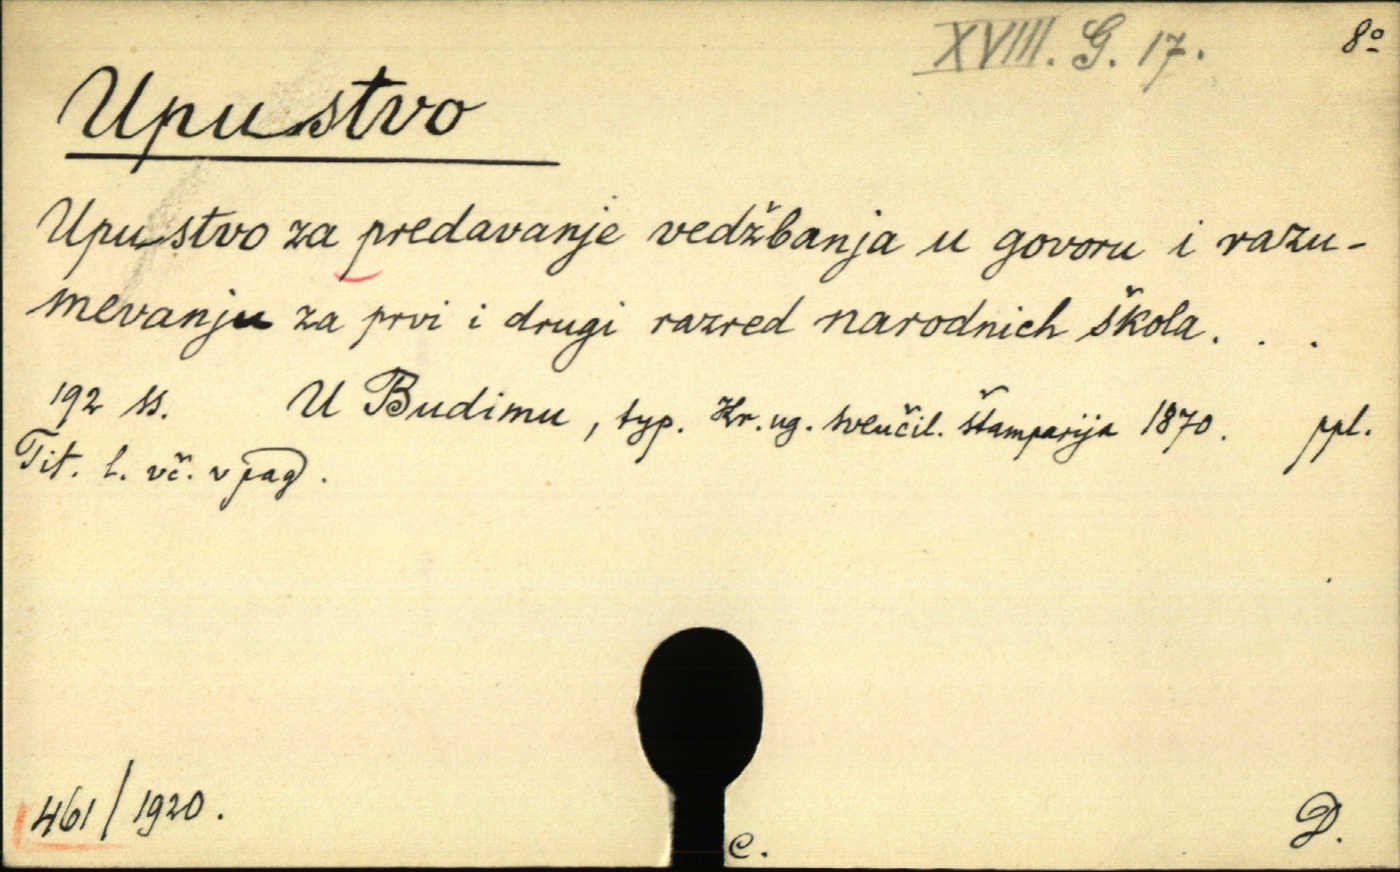 XVIII. G. 17.
8º
Upustvo
Upustvo za predavanje vedžbanja u govoru i razu-
mevanju za prvi i drugi razred narodnich škola. . .
192 ss. U Budimu, typ. Kr. ug. sveučil. štamparija 1870. ppl.
Tit. l. vč. v pag.
461/1920.
C.
D.